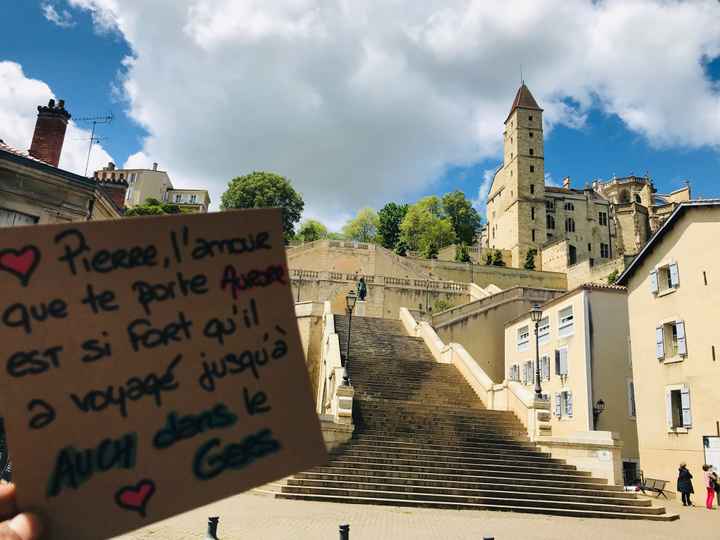 Pierre, l'amour
que te porte AURORE
EST si FORT qu'il
a voyagé jusqu'à
AUCH dans le
Gers